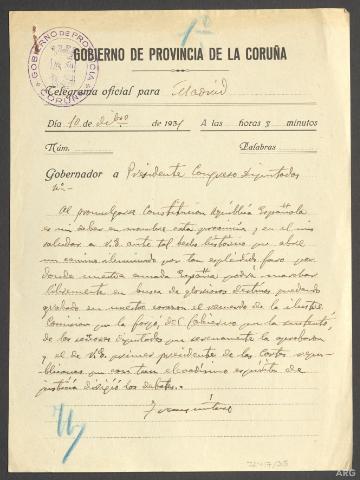 1º
GOBIERNO DE PROVINCIA
CORUÑA
GOBIERNO DE PROVINCIA DE LA CORUÑA
Telegrama oficial para Madrid
Día 10 de dibre de 1931 A las horas y minutos
Núm. Palabras
Gobernador a Presidente Congreso Diputados
Al promulgarse Constitucion República Española
es mi deber en nombre esta provincia y en el mio
saludar a V.E. ante tal hecho historico que abre
un camino iluminado por tan esplendido faro por
donde nuestra amada España podra marchar
libremente en busca de gloriosos destinos quedando
grabado en nuestro corazon el recuerdo de la ilustre
Comision que la forjó, del Gobierno que la sustentó,
de los señores Diputados que serenamente la aprobaron
y el de V.E. primer presidente de las Cortes repu-
blicanas que con tan elevadisimo espiritu de
justicia dirigió los debates.